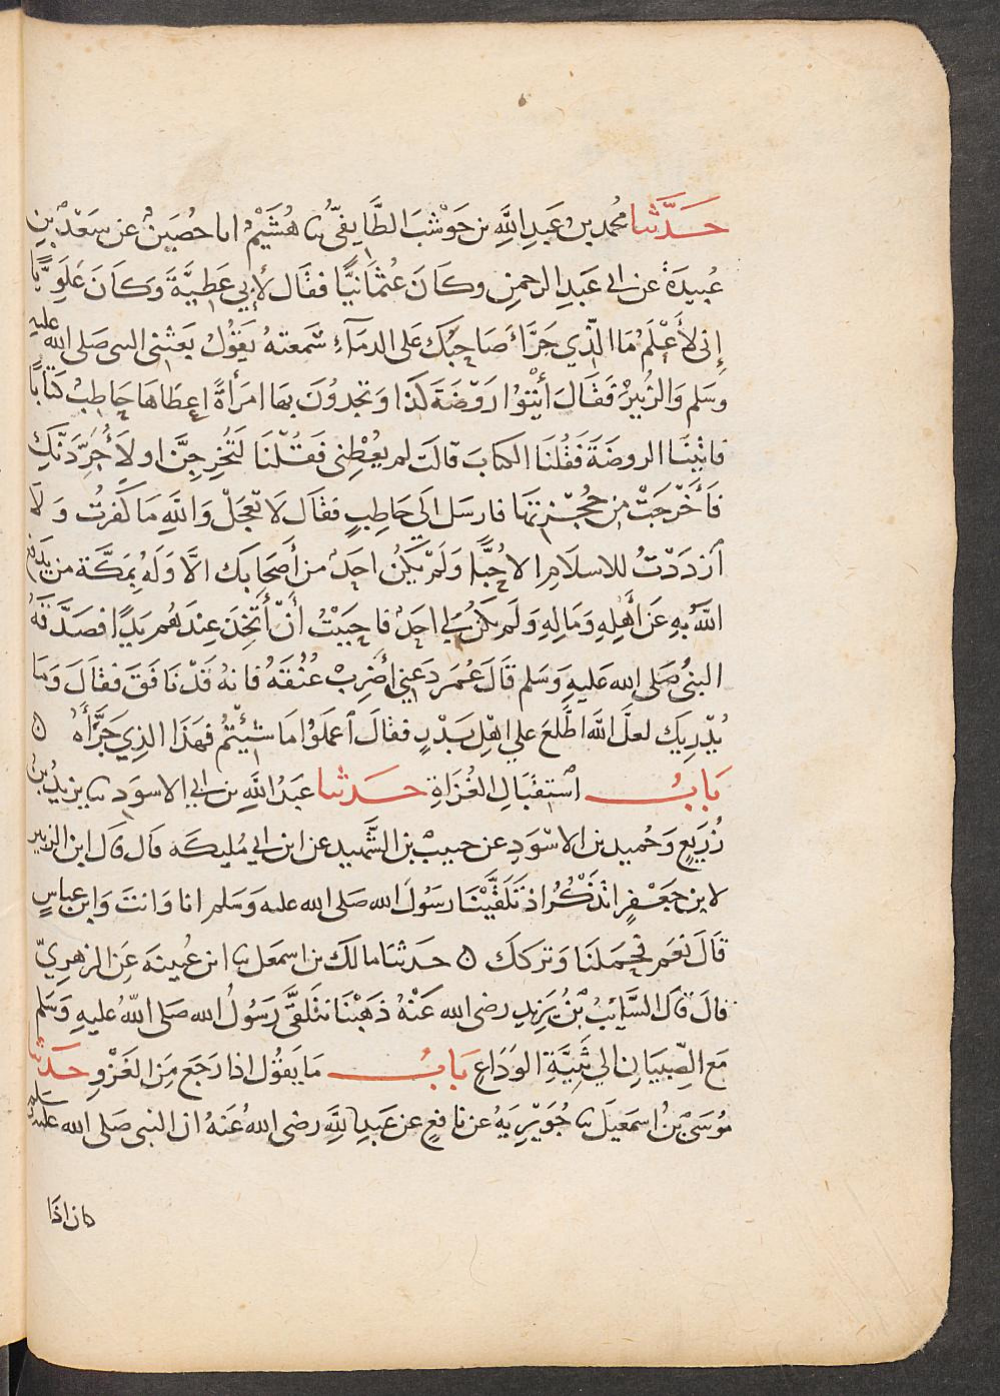 حَدَّثنا محُمد بن عَبدِ اللَّهِ بن حَوْشَبَ الطَّايفيّ ثنا هُشَيْمٌ انا حُصَينٌ عن سَعْدِ بنِ
عُبيدَةَ عن ابي عَبدِ الرحمنِ وكَانَ عُثمَانيًّا فقَال لأبي عَطِيَّةَ وَكَانَ عَلَوِيًّا
إني لأَعْلَمُ مَا الَّذي جَرَّاءَ صَاحِبُكَ عَلى الدمَآءِ سَمعتهُ يَقوُلُ بعَثني النبي صَلى الله عليه
وَسَلم وَالزُبيرَ فقَالَ أئْتوُا رَوْضَةَ كَذَا وَتجدُونَ بهَا امرَأةً اعطَاهَا حَاطِبٌ كتابًا
فاتَيْنَا الروضَةَ فَقُلنَا الكتابَ قالَت لم يُعْطِني فَقُلْنَا لَتُخرِجِنَّ او لَأُجَرِّدَنَّكِ
فَأخْرَجَتْ مِن حُجْزتهَا فارسَل الَي حَاطِبٍ فقَال لَا تَعْجَلْ وَاللَّهِ مَا كَفرتُ وَلَا
ازدَدْتُ للاسلَامِ الا حُبًّا وَلَمْ يَكنُ احَدٌ من أَصحَابِك الاَّ وَلَهُ بمَكَّة من يَدفع
اللَّهُ بهِ عَن أَهْلِهِ وَمَالِهِ وَلَم يَكنُ لي احَدٌ فاحبَبْتُ أنْ أتَّخِذَ عِندَهُم يَدًا فصَدَّقَهُ
النبيُ صَلى الله عَليهِ وَسَلم قَالَ عُمَر دَعنِي أضْرِبْ عُنُقَهُ فانهُ قَدْ نَافَقَ فقَالَ وَمَا
يُدْرِيكَ لعلَّ اللَّهَ اطَّلعَ علي اهْلِ بَدْرٍ فقَالَ اعْمَلوُا مَا شِئْتُم فَهَذَا الذِي جَرَّأهُ ٥
بَابُ اسْتقبَالِ الغُزَاةِ حَدثنا عَبدُ اللَّهِ بن ابي الاسوَد ثنا يزيدُ بنُ
زُرَيعٍ وَحُميد بن الاسْوَدِ عن حبيبْ بن الشَّهيد عن ابن ابي مُليكَه قَال قَال ابن الزبير
لابن جَعْفرٍ اتَذْكُرُ اذ تَلَقَّيْنَا رسَوُلَ الله صَلى الله عليه وَسَلم انا وَانتَ وَابن عباسٍ
قَالَ نعَم فحَمَلنَا وَترَككَ ٥ حَدثنا مالكَ بن اسمعَل ثنا ابن عُيينَة عَنِ الزهرِيّ
قالَ قالَ السَّايبُ بْنُ يَزيد رضى الله عَنْهُ ذهَبْنَا نتَلَقَّى رَسُولُ الله صَلى اللهُ عليهِ وَسَلم
مَع الصِّبيَانِ الي ثنيَّةِ الوَدَاعِ بَابُ مَا يقوُل اذا رجَع مِنَ الغَزْوِ حَدثنا
مُوسَى بْنُ اسمَعيَل ثنا جُوَيْرِيَهُ عن نافعٍ عن عَبدِ اللَّهِ رضى اللهُ عَنهُ ان النبى صَلى الله عليه وسلم
كان اذَا